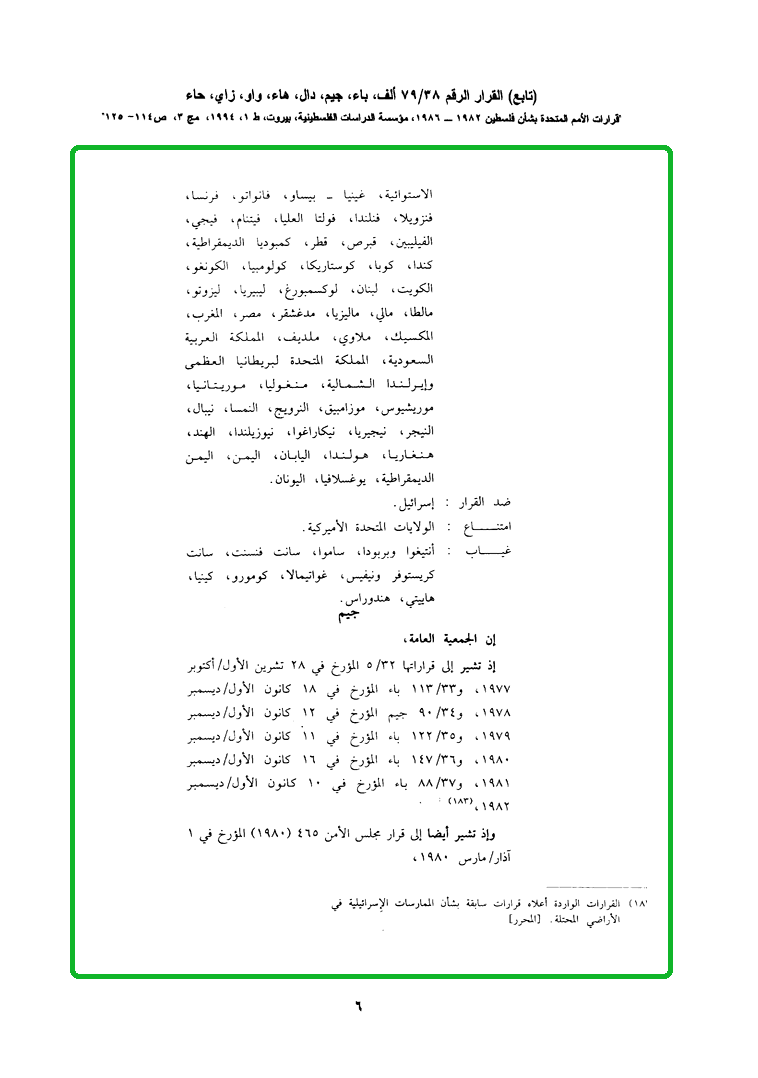 (تابع) القرار الرقم ٧٩/٣٨ ألف، باء، جيم، دال، هاء، واو، زاي، حاء
"قرارات الأمم المتحدة بشأن فلسطين ١٩٨٢ ــ ١٩٨٦، مؤسسة الدراسات الفلسطينية، بيروت، ط ١، ١٩٩٤، مج ٣، ص١١٤- ١٢٥"
الاستوائية، غينيا ـ بيساو، فانواتو، فرنسا،
فنزويلا، فنلندا، فولتا العليا، فيتنام، فيجي،
الفيليبين، قبرص، قطر، كمبوديا الديمقراطية،
كندا، كوبا، كوستاريكا، كولومبيا، الكونغو،
الكويت، لبنان، لوكسمبورغ، ليبيريا، ليزوتو،
مالطا، مالي، ماليزيا، مدغشقر، مصر، المغرب،
المكسيك، ملاوي، ملديف، المملكة العربية
السعودية، المملكة المتحدة لبريطانيا العظمى
وإيرلندا الشمالية، منغوليا، موريتانيا،
موريشيوس، موزامبيق، النرويج، النمسا، نيبال،
النيجر، نيجيريا، نيكاراغوا، نيوزيلندا، الهند،
هنغاريا، هولندا، اليابان، اليمن، اليمن
الديمقراطية، يوغسلافيا، اليونان.
ضد القرار : إسرائيل.
امتنـــــاع : الولايات المتحدة الأميركية.
غيـــــاب : أنتيغوا وبربودا، ساموا، سانت فنسنت، سانت
كريستوفر ونيفيس، غواتيمالا، كومورو، كينيا،
هاييتي، هندوراس.
جيم
إن الجمعية العامة،
إذ تشير إلى قراراتها ٥/٣٢ المؤرخ في ٢٨ تشرين الأول/أكتوبر
١٩٧٧، و١١٣/٣٣ باء المؤرخ في ١٨ كانون الأول/ديسمبر
١٩٧٨، و٩٠/٣٤ جيم المؤرخ في ١٢ كانون الأول/ديسمبر
١٩٧٩، و١٢٢/٣٥ باء المؤرخ في ١١ كانون الأول/ديسمبر
١٩٨٠، و١٤٧/٣٦ باء المؤرخ في ١٦ كانون الأول/ديسمبر
١٩٨١، و٨٨/٣٧ باء المؤرخ في ١٠ كانون الأول/ديسمبر
١٩٨٢،(١٨٣)
وإذ تشير أيضا إلى قرار مجلس الأمن ٤٦٥ (١٩٨٠) المؤرخ في ١
آذار/مارس ١٩٨٠،
١٨) القرارات الواردة أعلاه قرارات سابقة بشأن الممارسات الإسرائيلية في
الأراضي المحتلة. [المحرر]
٦